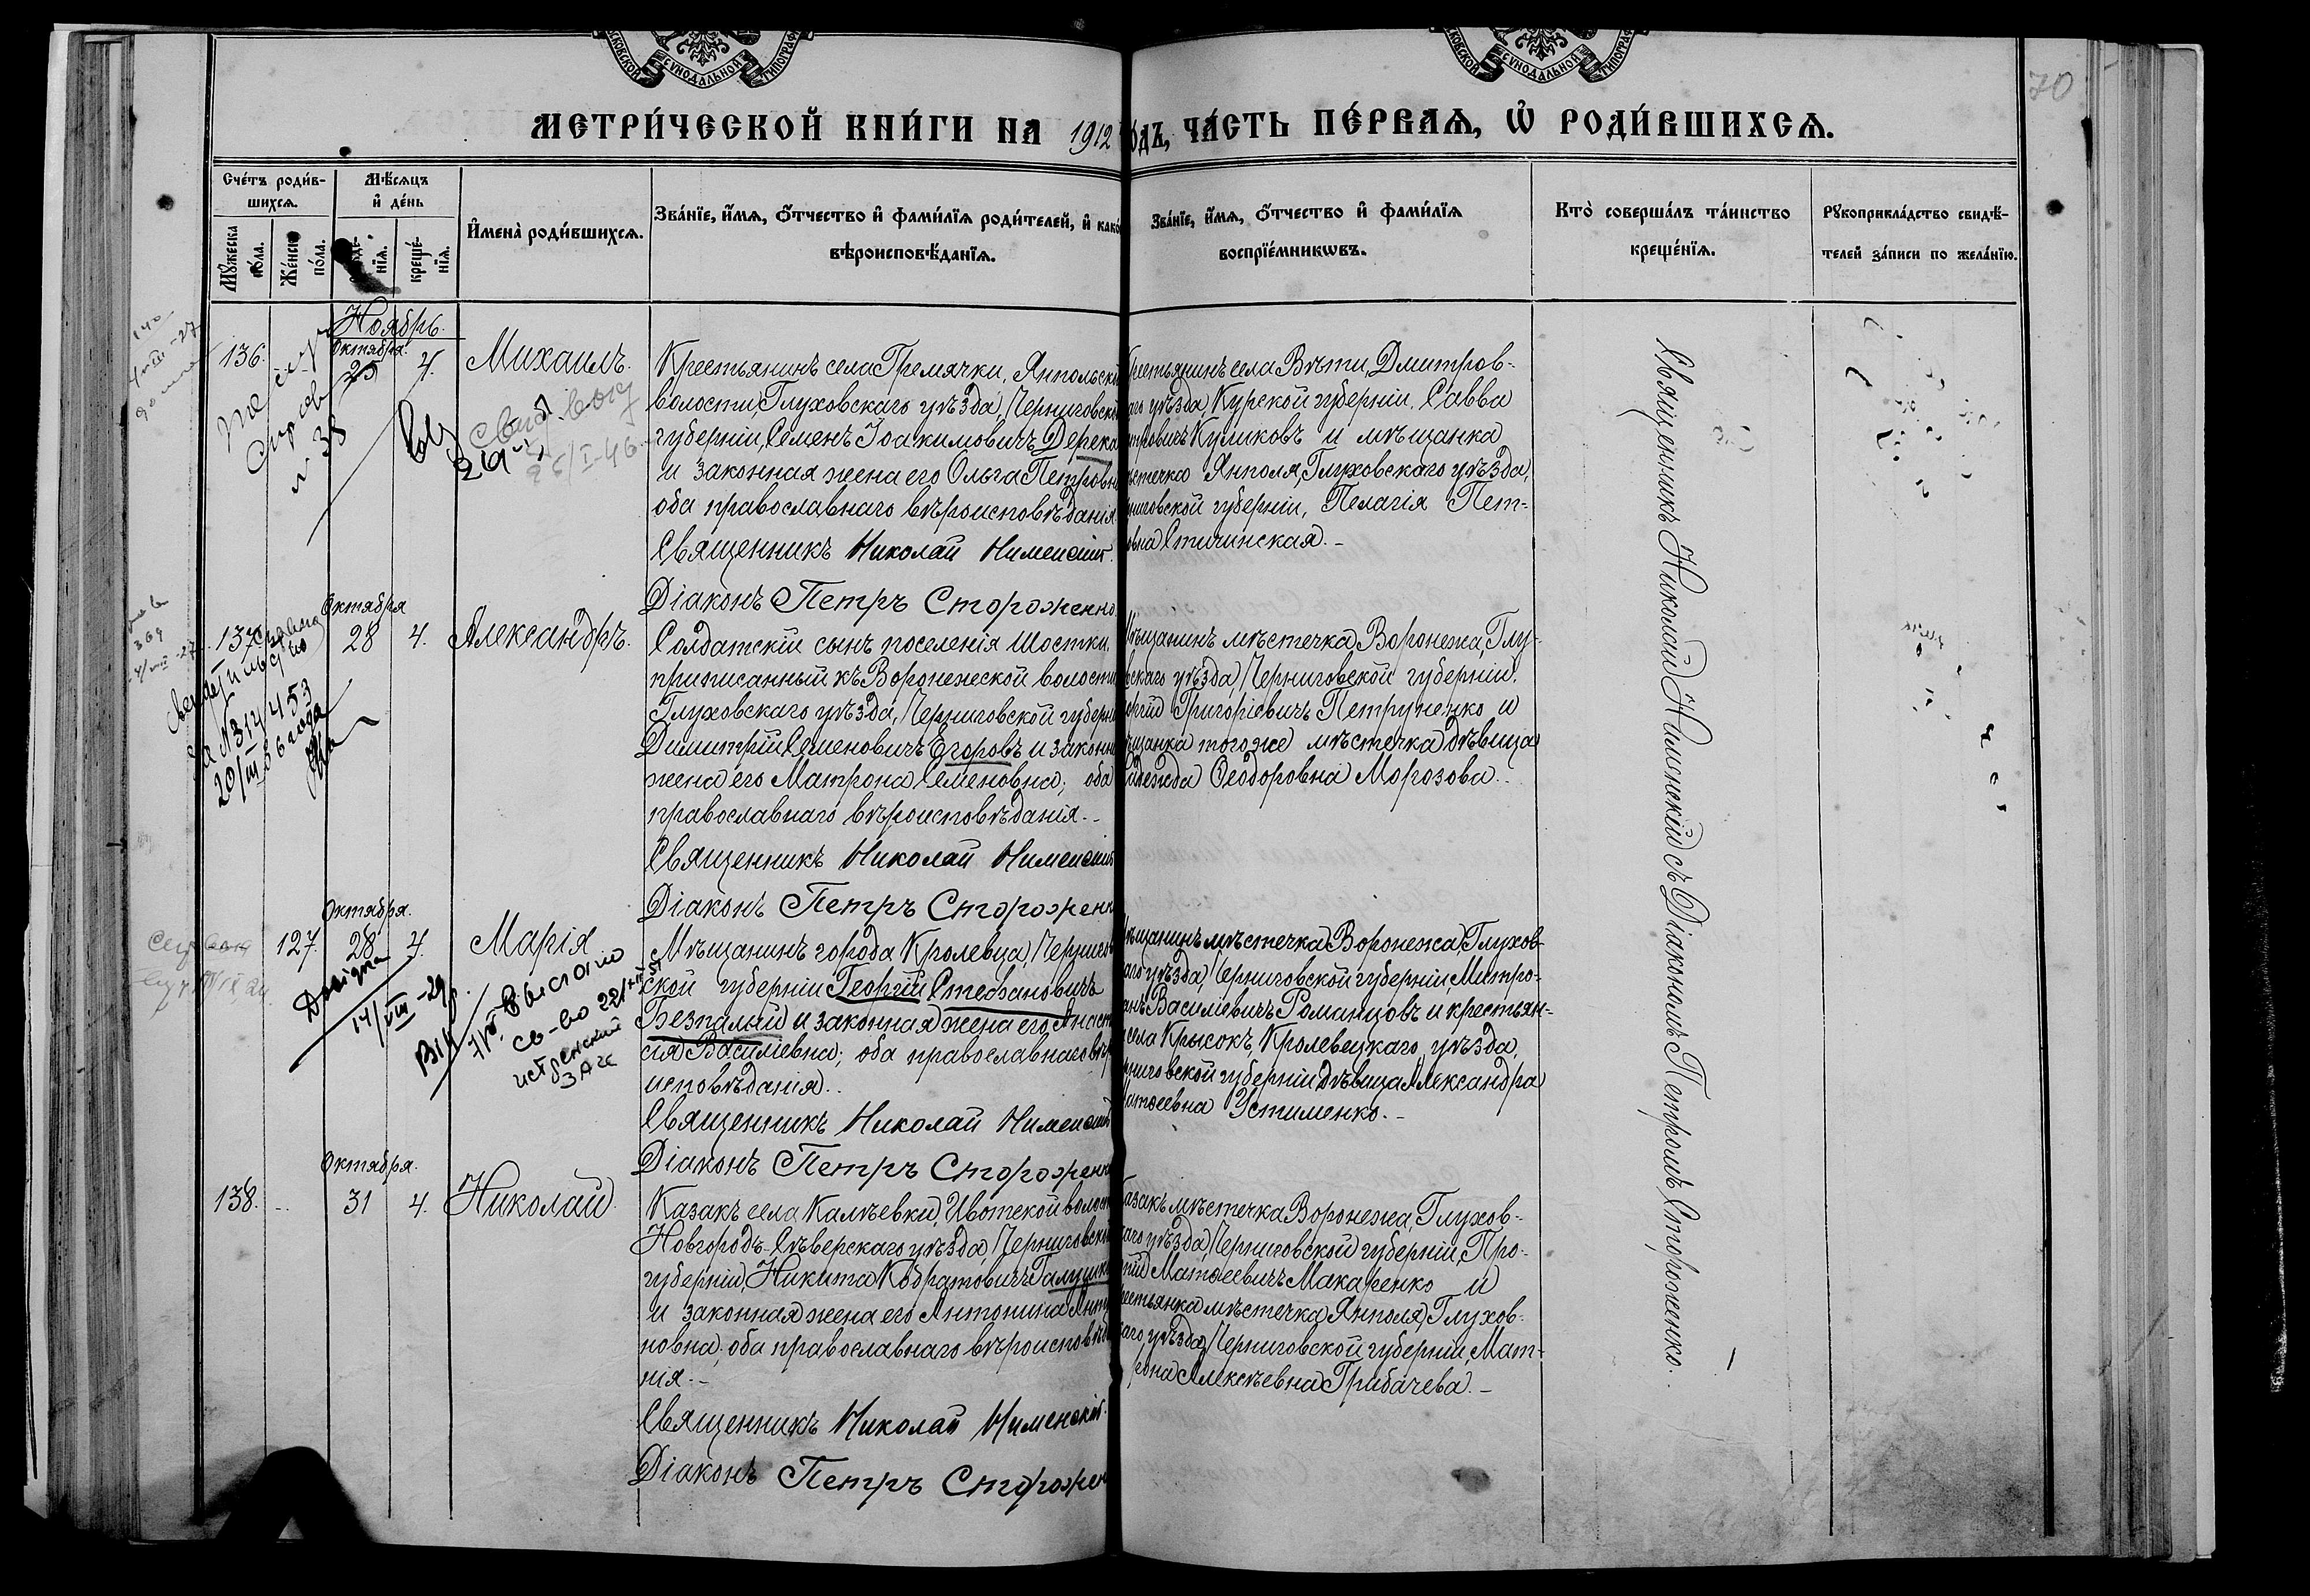 МЕТРИ́ЧЕСКОЙ КНИ́ГИ НА 1912 ОДЪ, ЧА́СТЬ ПЕ́РВАѦ, Ѡ҆ РОДИ́ВШИХСѦ.
70
Сче́тъ роди́в-
шихсѧ.
Мѣ́сѧцъ
и҆ де́нь
И҆мена̀ роди́вшихсѧ.
Зва́нїе, и҆́мѧ, ѻ҆́тчество и҆ фами́лїѧ роди́телей, и҆ како́
вѣроисповѣ́данїѧ.
Зва́нїе, и҆́мѧ, ѻ҆́тчество и҆ фами́лїѧ
воспрїе́мникѡвъ.
Кто̀ соверша́лъ та́инство
креще́нїѧ.
Рꙋкоприкла́дство свидѣ́-
телей за́писи по жела́нїю.
Мꙋ́жеска
по́ла.
Же́нск
по́ла.
нїѧ.
креще́-
нїѧ.
Ноябрь.
Октября.
136. 25 4. Михаилъ.
Крестьянинъ села Гремячки, Янпольск
волости, Глуховскаго уѣзда, Черниговск
губерніи, Семенъ Іоакимовичъ Дерека
и законная жена его Ольга Петровн
оба православнаго вѣроисповѣданія
Священникъ Николай Нименскій.
Діаконъ Петръ Стороженко
рестьянинъ села Вѣти, Дмитров-
аго уѣзда, Курской губерніи, Савва
тровичъ Куликовъ и мѣщанка
ѣстечка Янполя, Глуховскаго уѣзда,
ниговской губерніи, Пелагія Пет-
вна Стичинская.-
№ 38
26/I-46
Октября
137. 28 4. Александръ.
Солдатскій сынъ поселенія Шостки,
приписанный къ Воронежской волости
Глуховскаго уѣзда, Черниговской губерн
Димитрій Семеновичъ Егоровъ и законн
жена его Матрона Семеновна; оба
православнаго вѣроисповѣданія.-
Священникъ Николай Нименскі
Діаконъ Петръ Стороженк
ѣщанинъ мѣстечка Воронежа, Глу-
вскаго уѣзда, Черниговской губерніи,
оргій Григоріевичъ Петруненко и
ѣщанка того же мѣстечка дѣвица
адежда Ѳеодоровна Морозова.-
20/III 36 года
Октября.
127. 28 4. Марія
Мѣщанинъ города Кролевца, Чернигов
ской губерніи Георгій Стефановичъ
Безпалый и законная жена его Анаст
сія Василіевна; оба православнаго вѣр
исповѣданія.-
Священникъ Николай Нименскі
Діаконъ Петръ Стороженк
ѣщанинъ мѣстечка Воронежа, Глухов-
аго уѣзда, Черниговской губерніи, Митро-
анъ Василіевичъ Романцовъ и крестьян-
села Крысокъ, Кролевецкаго уѣзда,
рниговской губерніи дѣвица Александра
Матѳеевна Устименко.-
14/VIII-29
Выслано
св-во
ЗАГС
Октября.
138. 31 4. Николай.
Казакъ села Калѣевки, Ивотской волост
Новгородъ-Сѣверскаго уѣзда Черниговско
губерніи, Никита Кодратовичъ Галушк
и законная жена его Антонина Анто
новна; оба православнаго вѣроисповѣд
нія.-
Священникъ Николай Нименскій.
Діаконъ Петръ Сторожен
азакъ мѣстечка Воронежа, Глухов-
аго уѣзда, Черниговской губерніи, Про-
пій Матѳеевичъ Макаренко и
рестьянка мѣстечка Янполя, Глухов-
каго уѣзда, Черниговской губерніи, Мат-
рона Алексѣевна Грибачева.-
Священникъ Николай Нименскій съ Діакономъ Петромъ Стороженко.